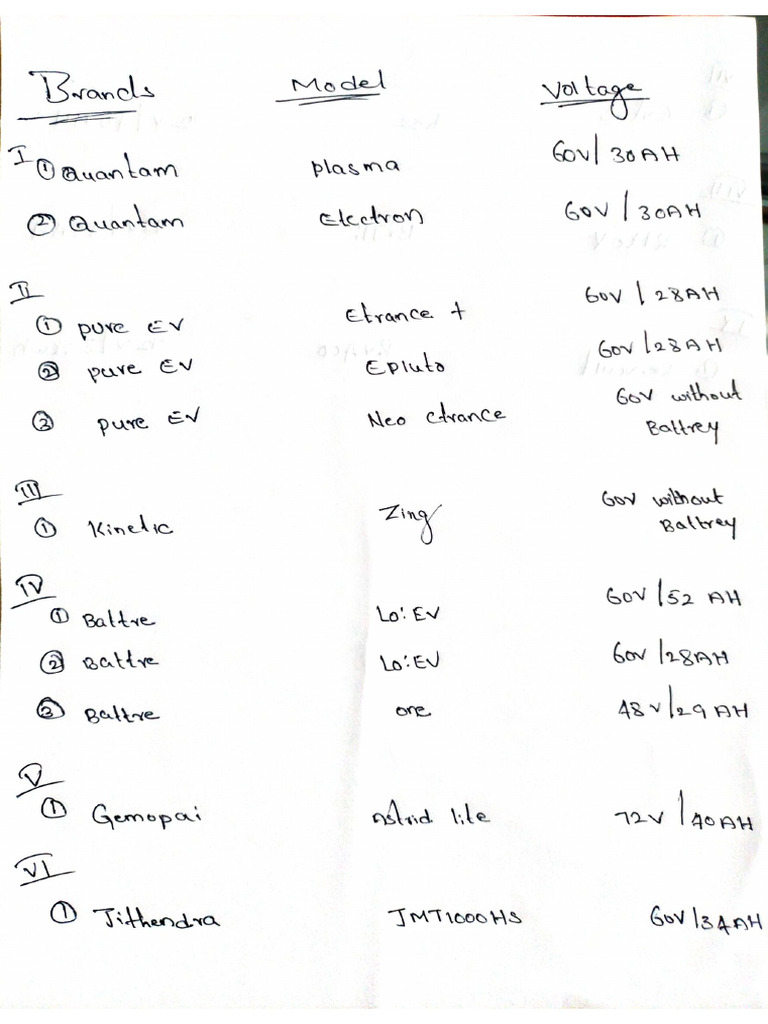 Brands Model Voltage
I ① Quantam plasma 60V/30AH
② Quantam Electron 60V/30AH
II
① pure EV Etrance + 60V/28AH
② pure EV Epluto 60V/28AH
③ pure EV Neo etrance 60V without
Battrey
III
① Kinetic Zing 60V without
Battrey
IV
① Battre Lo:EV 60V/52 AH
② Battre Lo:EV 60V/28AH
③ Battre one 48V/29AH
V
① Gemopai Astrid lite 72V/40AH
VI
① Jithendra JMT1000HS 60V/34AH